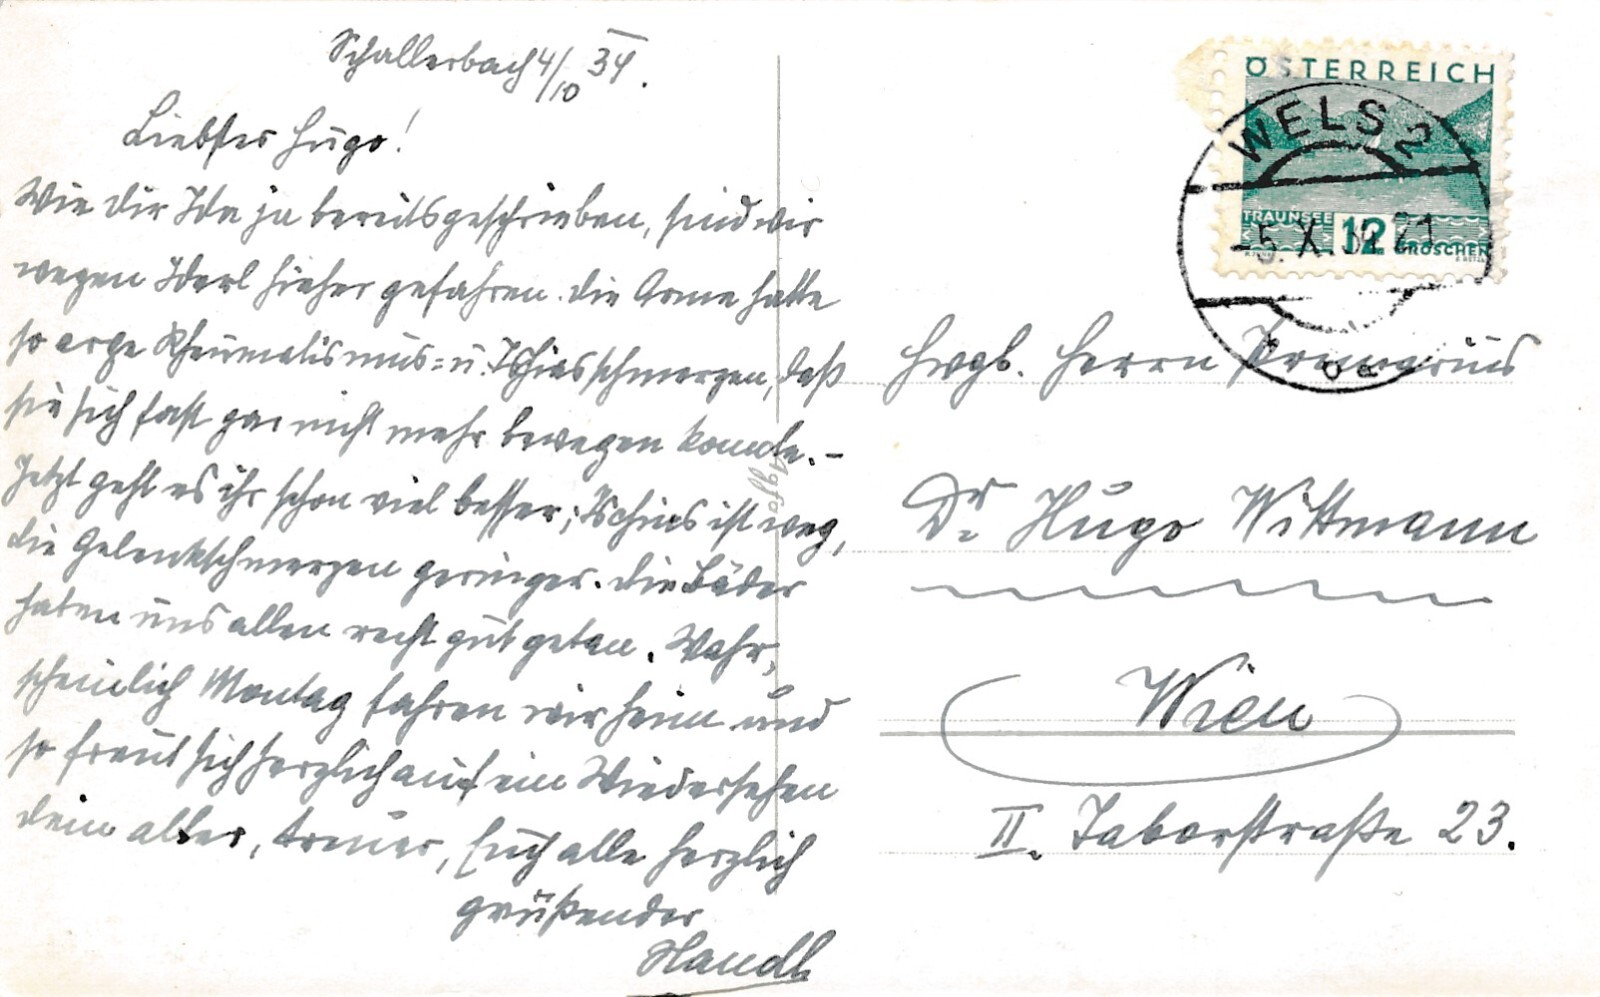 Schallerbach 4/10 34.
Liebster Hugo!
Wie dir Ida ja bereits geschrieben, sind wir
wegen Iderl hieher gefahren. Die Arme hatte
so arge Rheumatismus= u. Ischiasschmerzen, daß
sie sich fast gar nicht mehr bewegen konnte. –
Jetzt geht es ihr schon viel besser; Ischias ist weg,
die Gelenkschmerzen geringer. Die Bäder
haben uns allen recht gut getan. Wahr-
scheinlich Montag fahren wir heim und
so freut sich herzlich auf ein Wiedersehen
dein alter, treuer, Euch alle herzlich
grüßender
Handl
Agfa
ÖSTERREICH
TRAUNSEE 12 GROSCHEN
WELS 2
-5.X.34 21
Hwgb. Herrn Primarius
Dr. Hugo Wittmann
Wien
II. Taborstraße 23.